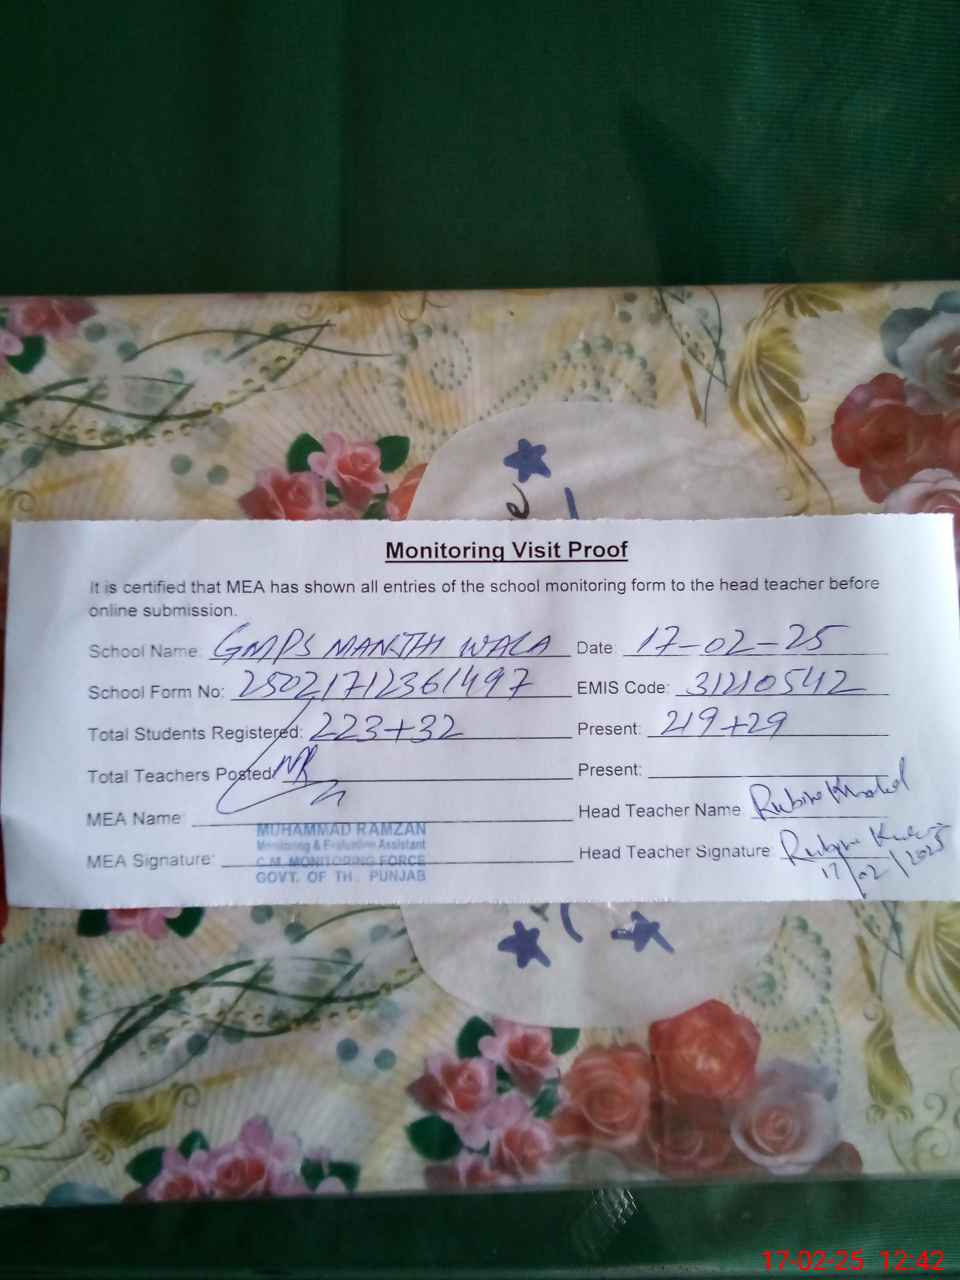 Monitoring Visit Proof
It is certified that MEA has shown all entries of the school monitoring form to the head teacher before
online submission.
School Name: GMPS MANTHI WALA Date 17-02-25
School Form No: 25021712361497 EMIS Code: 31210542
Total Students Registered: 223+32 Present: 219+29
Total Teachers Posted: Present:
MEA Name: Head Teacher Name: Rubina
MUHAMMAD RAMZAN
Monitoring & Evaluation Assistant
MEA Signature: Head Teacher Signature: Rubina
C.M. MONITORING FORCE
GOVT. OF TH. PUNJAB
17/02/2025
17-02-25 12:42